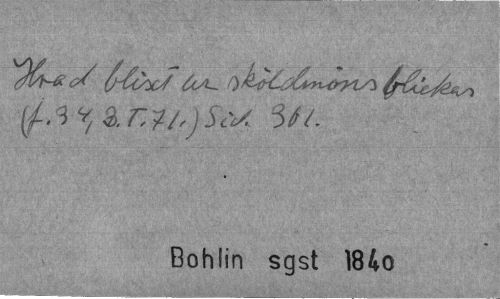 Hvad blixt ur sköldmöns blickar
(f. 34, B.T. 71.) Sid. 361.
Bohlin sgst 1840